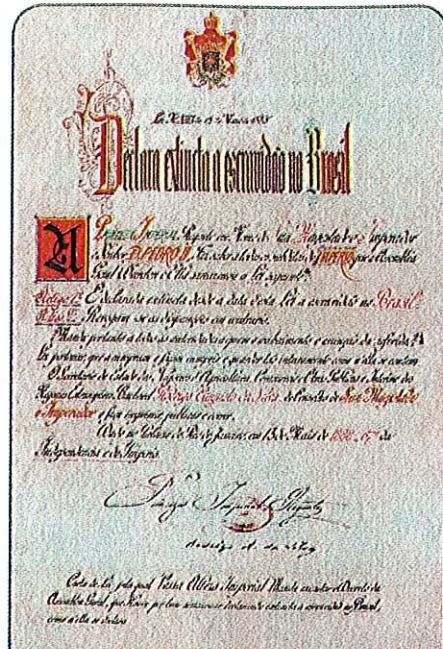 Lei N. 3353 de 13 de Maio de 1888
Declara extincta a escravidão no Brasil
A Princeza Imperial Regente em Nome de Sua Magestade o Imperador
o Senhor D. PEDRO II Faz saber a todos os subditos do IMPERIO que a Assembléa
Geral Decretou e Ella sanccionou a Lei seguinte:
Artigo 1º É declarada extincta desde a data desta Lei a escravidão no Brazil.
Artigo 2º Revogam-se as disposições em contrario.
Manda portanto a todas as autoridades a quem o conhecimento e execução da referida Lei
pertencer, que a cumpram e façam cumprir e guardar tão inteiramente como n'ella se contem.
O Secretario de Estado dos Negocios d'Agricultura, Commercio e Obras Publicas e Interino dos
Negocios Estrangeiros, Bacharel Rodrigo Augusto da Silva do Conselho de Sua Magestade
o Imperador o faça imprimir, publicar e correr.
Dado no Palacio do Rio de Janeiro, em 13 de Maio de 1888 67º da
Independencia e do Imperio.
Princeza Imperial Regente
Rodrigo A. da Silva
Carta de Lei, pela qual Vossa Alteza Imperial Manda executar o Decreto da
Assembléa Geral, que Houve por bem sanccionar declarando extincta a escravidão no Brazil,
como n'ella se declara